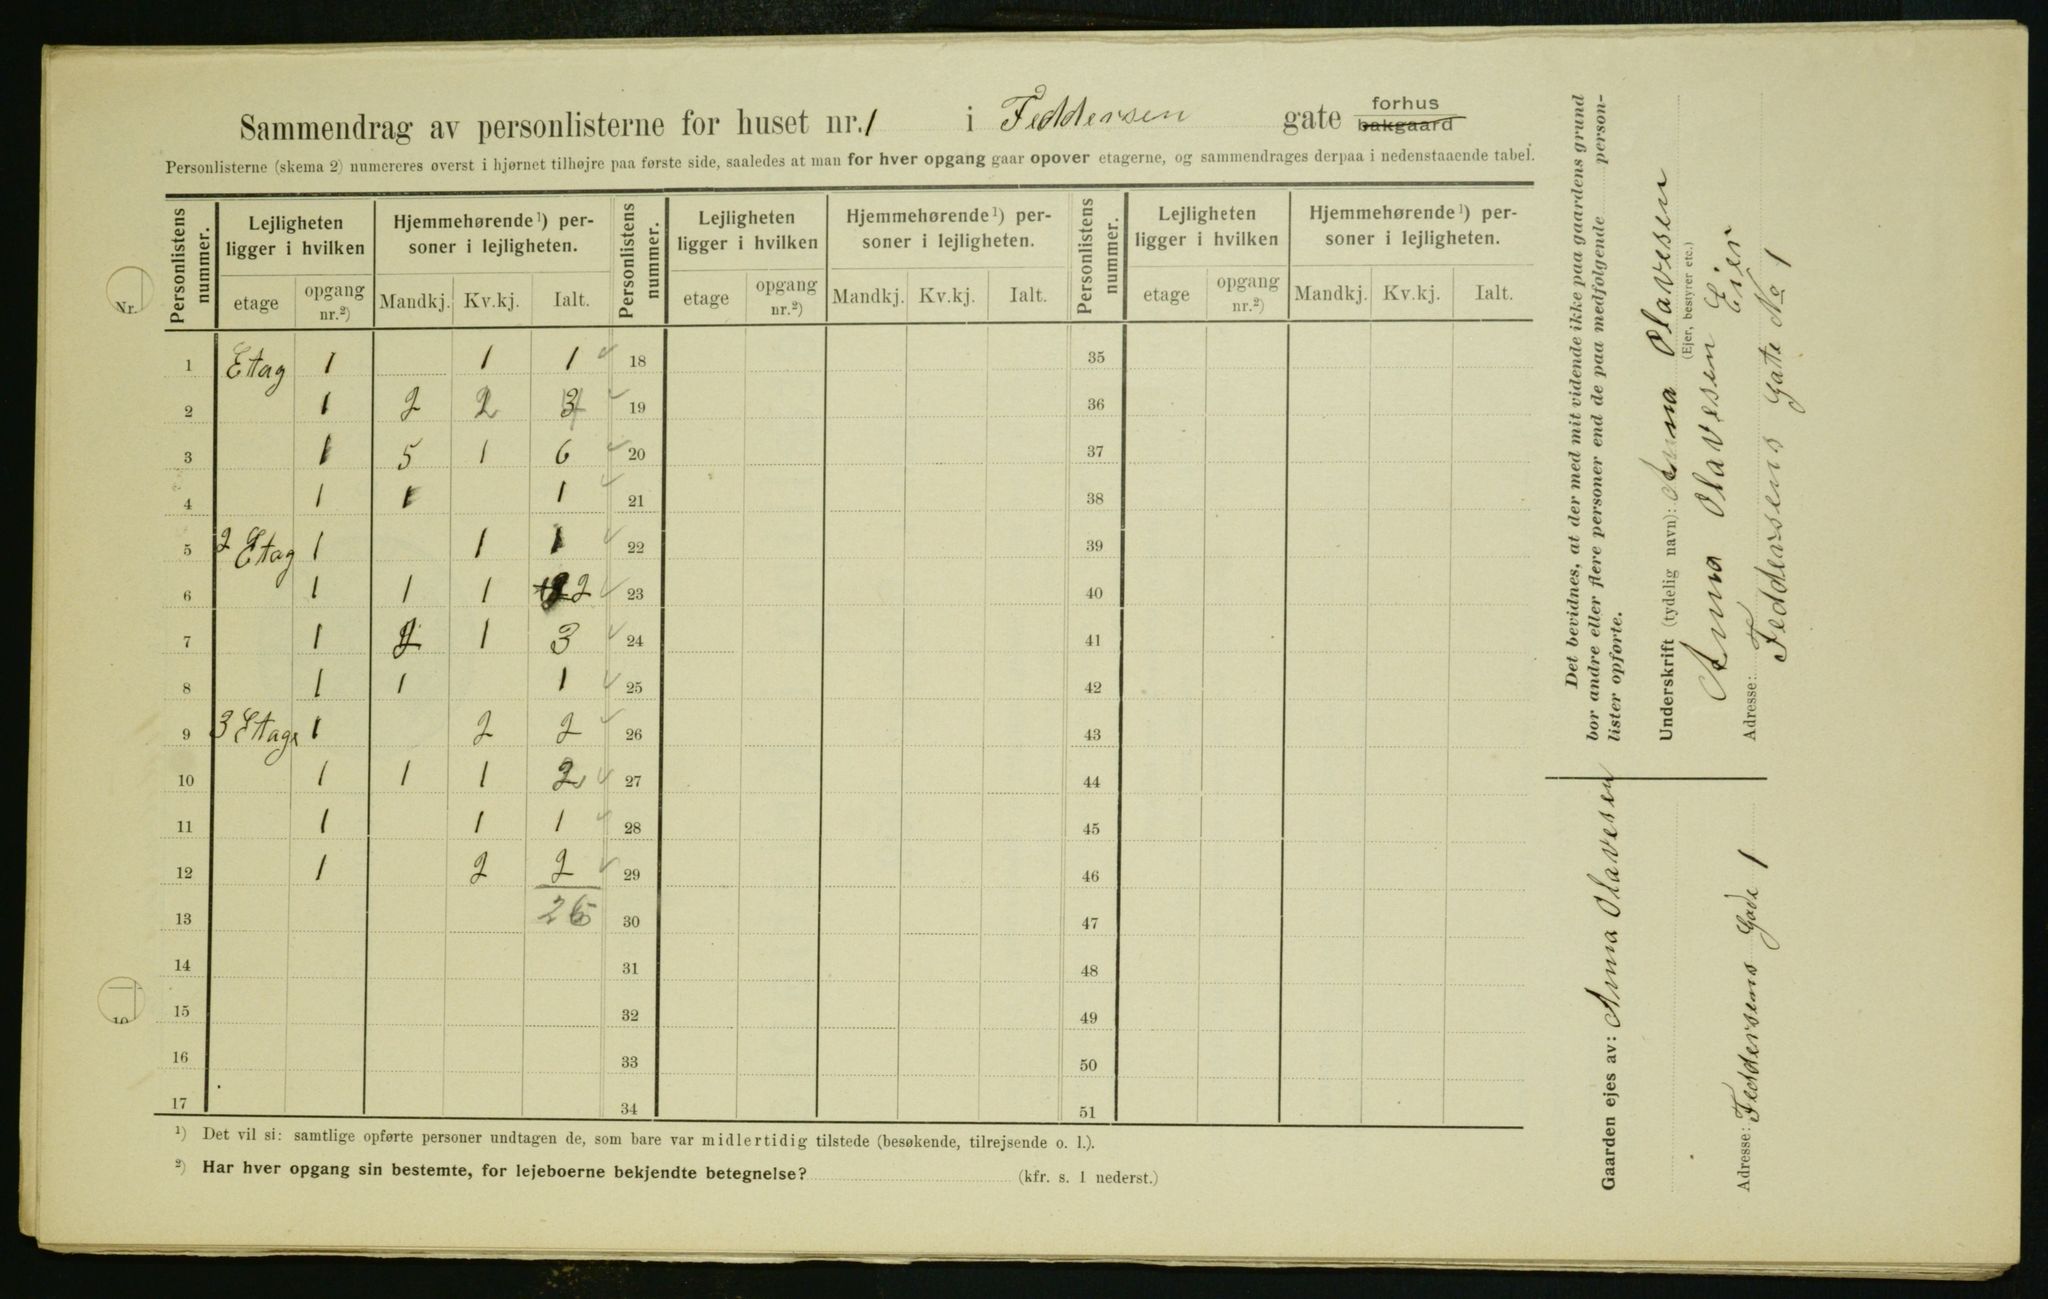 Sammendrag av personlisterne for huset nr. 1 i Feddersen gate forhus bakgaard
Personlisterne (skema 2) numereres øverst i hjørnet tilhøjre paa første side, saaledes at man for hver opgang gaar opover etagerne, og sammendrages derpaa i nedenstaaende tabel.
Personlistens nummer. Lejligheten ligger i hvilken Hjemmehørende ¹) personer i lejligheten. Personlistens nummer. Lejligheten ligger i hvilken Hjemmehørende ¹) personer i lejligheten. Personlistens nummer. Lejligheten ligger i hvilken Hjemmehørende ¹) personer i lejligheten.
etage opgang nr.²) Mandkj. Kv.kj. Ialt. etage opgang nr.²) Mandkj. Kv.kj. Ialt. etage opgang nr.²) Mandkj. Kv.kj. Ialt.
Nr.
1 Etag 1 1 1 18 35
2 1 2 2 19 36
3 1 5 1 6 20 37
4 1 1 1 21 38
5 2 Etag 1 1 1 22 39
6 1 1 1 2 23 40
7 1 2 1 3 24 41
8 1 1 1 25 42
9 3 Etage 1 2 2 26 43
10 1 1 1 2 27 44
11 1 1 1 28 45
12 1 2 2 29 46
13 26 30 47
14 31 48
15 32 49
16 33 50
17 34 51
¹) Det vil si: samtlige opførte personer undtagen de, som bare var midlertidig tilstede (besøkende, tilrejsende o. l.).
²) Har hver opgang sin bestemte, for lejeboerne bekjendte betegnelse? (kfr. s. 1 nederst.)
Det bevidnes, at der med mit vidende ikke paa gaardens grund
bor andre eller flere personer end de paa medfølgende person-
lister opførte.
Underskrift (tydelig navn): Anna Olavesen
(Ejer, bestyrer etc.)
Anna Olavesen Eier
Adresse: Feddersens Gate No 1
Gaarden ejes av: Anna Olavesen
Adresse: Feddersens Gade 1